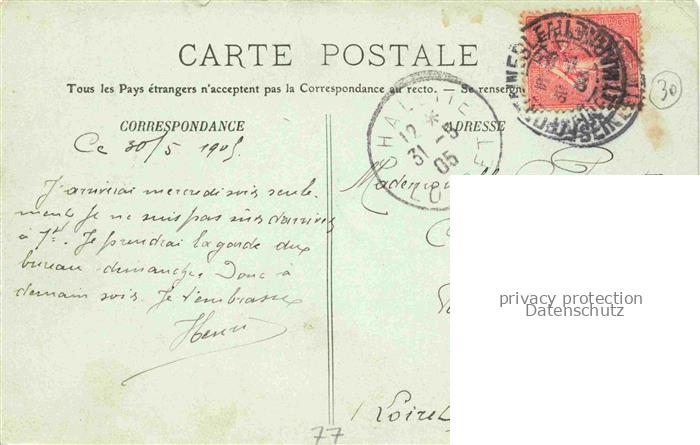 CARTE POSTALE
Tous les Pays étrangers n'acceptent pas la Correspondance au recto. — Se renseign
30
CORRESPONDANCE
ADRESSE
CHALETTE
12 *
31 -5
05
LOIRET
Ce 30/5 1905
J'arriverai mercredi soir seule-
ment. Je ne suis pas sûr d'arriver
à 7h. Je prendrai la garde du
bureau dimanche Donc à
demain soir. Je t'embrasse
Henri
Mademoiselle
Loiret
77
privacy protection
Datenschutz